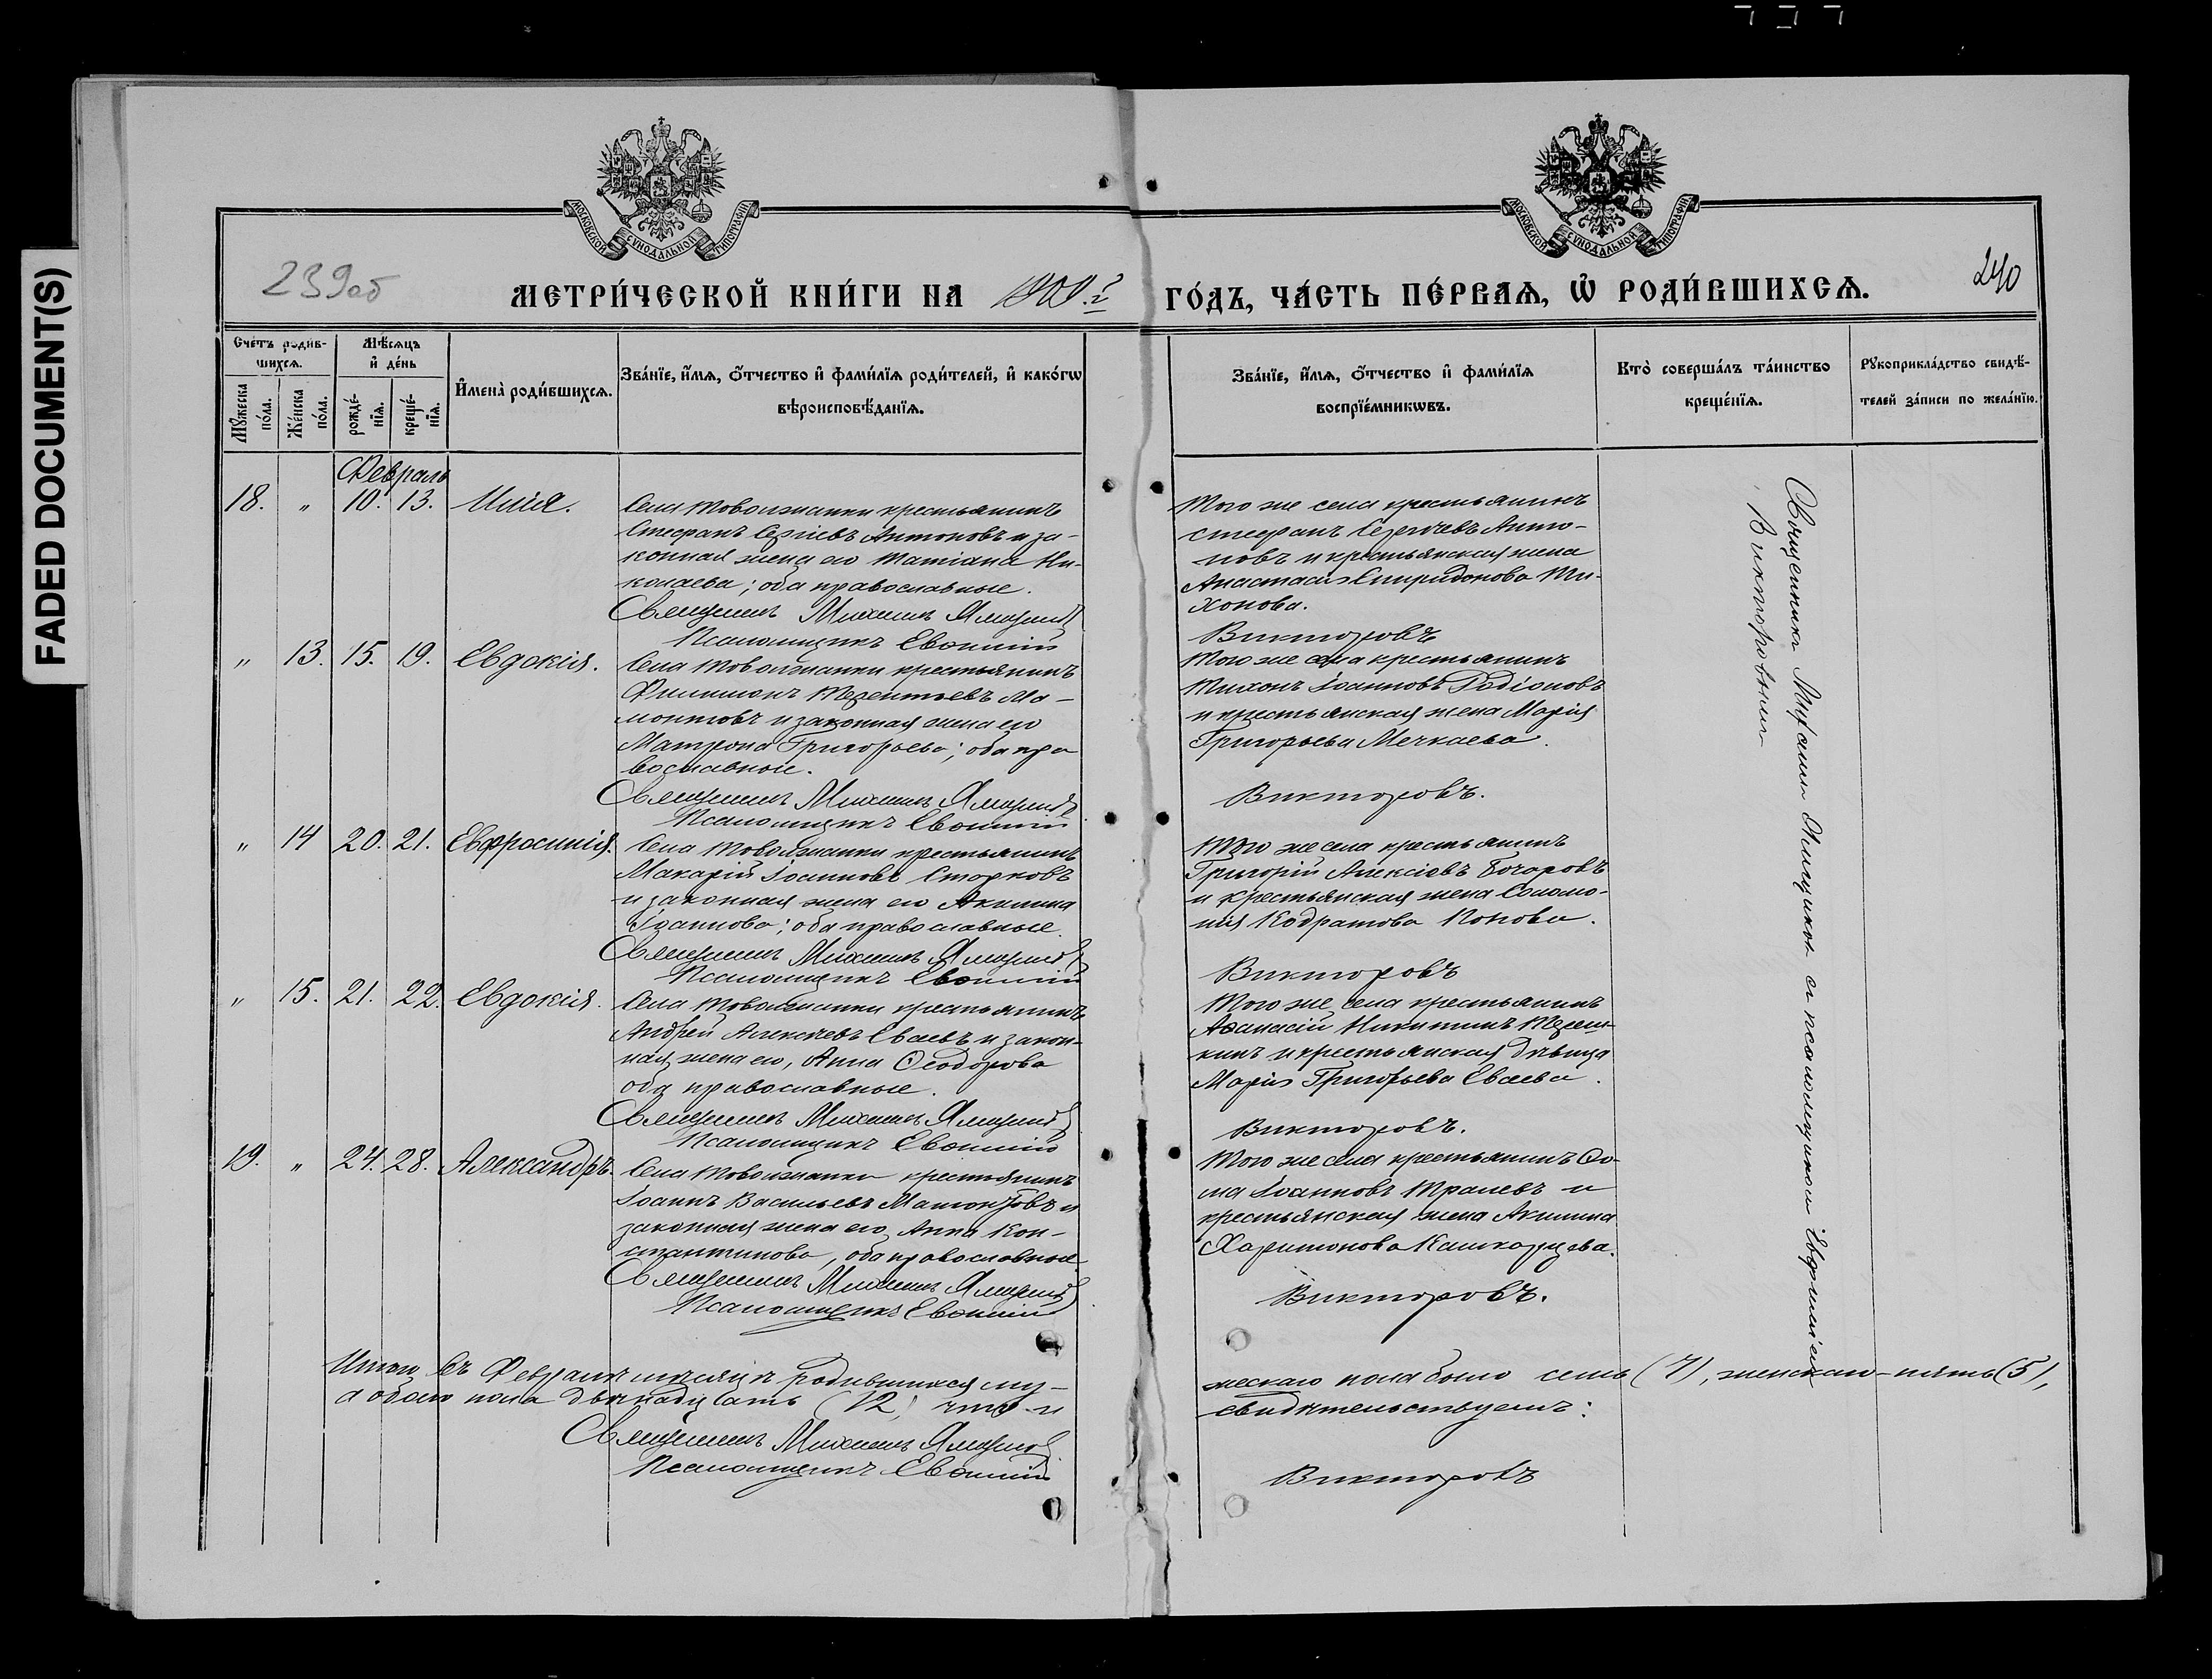 FADED DOCUMENT(S)
МОСКОВСКОЙ СѴНОДАЛЬНОЙ ТИПОГРАФІИ
МОСКОВСКОЙ СѴНОДАЛЬНОЙ ТИПОГРАФІИ
239об
240
МЕТРИ́ЧЕСКОЙ КНИ́ГИ НА
ГО́ДЪ, ЧА́СТЬ ПЕ́РВАѦ, Ѡ҆ РОДИ́ВШИХСѦ.
Сче́тъ роди́в-
шихсѧ.
Мꙋ́жеска по́ла.
Же́нска по́ла.
Мѣ́сѧцъ
и҆ де́нь
рожде́-нїѧ.
креще́-нїѧ.
И҆мена̀ роди́вшихсѧ.
Зва́нїе, и҆́мѧ, ѻ҆́тчество и҆ фами́лїѧ роди́телей, и҆ како́гѡ
вѣроисповѣ́данїѧ.
Зва́нїе, и҆́мѧ, ѻ҆́тчество и҆ фами́лїѧ
воспрїе́мникѡвъ.
Кто̀ соверша́лъ та́инство
креще́нїѧ.
Рꙋкоприкла́дство свидѣ́-
телей за́писи по жела́нїю.
Февраль
18. " 10. 13. Илія.
Села Товолжанки крестьянинъ
Стефанъ Сергіевъ Антоновъ и за-
конная жена его Татіана Ни-
колаева; оба православные.
Священникъ Михаилъ
Псаломщикъ Евфимій
Того же села крестьянинъ
Стефанъ Сергѣевъ Анто-
новъ и крестьянская жена
Анастасія Спиридонова Ти-
хонова.
Викторовъ
" 13. 15. 19. Евдокія.
Села Товолжанки крестьянинъ
Филимонъ Терентьевъ Ма-
монтовъ и законная жена его
Матрона Григорьева; оба пра
вославные.
Священникъ Михаилъ
Псаломщикъ Евфимій
Того же села крестьянинъ
Тихонъ Іоанновъ Родіоновъ
и крестьянская жена Марія
Григорьева Мечкаева.
Викторовъ.
" 14 20. 21. Евфросинія.
Села Товолжанки крестьянинъ
Макарій Іоанновъ
и законная жена его Акилина
Іоаннова; оба православные.
Священникъ Михаилъ
Псаломщикъ Евфимій
Того же села крестьянинъ
Григорій Алексіевъ Бочаровъ
и крестьянская жена Соломо-
нія Кодратова Попова.
Викторовъ
" 15. 21. 22. Евдокія.
Села Товолжанки крестьянинъ
Андрей Алексѣевъ Еваевъ и закон-
ная жена его, Анна Ѳеодорова
оба православные.
Священникъ Михаилъ
Псаломщикъ Евфимій
Того же села крестьянинъ
Аѳанасій Никитинъ Тереш-
кинъ и крестьянская дѣвица
Марія Григорьева Еваева.
Викторовъ.
19. " 24. 28. Александръ.
Села Товолжанки крестьянинъ
Іоаннъ Васильевъ Мамонтовъ и
законная жена его, Анна Кон-
стантинова, оба православные.
Священникъ Михаилъ
Псаломщикъ Евфимій
Того же села крестьянинъ Ѳо-
ма Іоанновъ и
крестьянская жена Акилина
Харитонова Кашкарцева.
Викторовъ.
Священникъ Михаилъ съ псаломщикомъ Евфиміемъ
Викторовымъ
Итого въ Февралѣ мѣсяцѣ родившихся му-
жескаго пола было семь (7), женскаго - пять (5),
а обоего пола двѣнадцать (12), что и
свидѣтельствуемъ:
Священникъ Михаилъ
Псаломщикъ Евфимій
Викторовъ